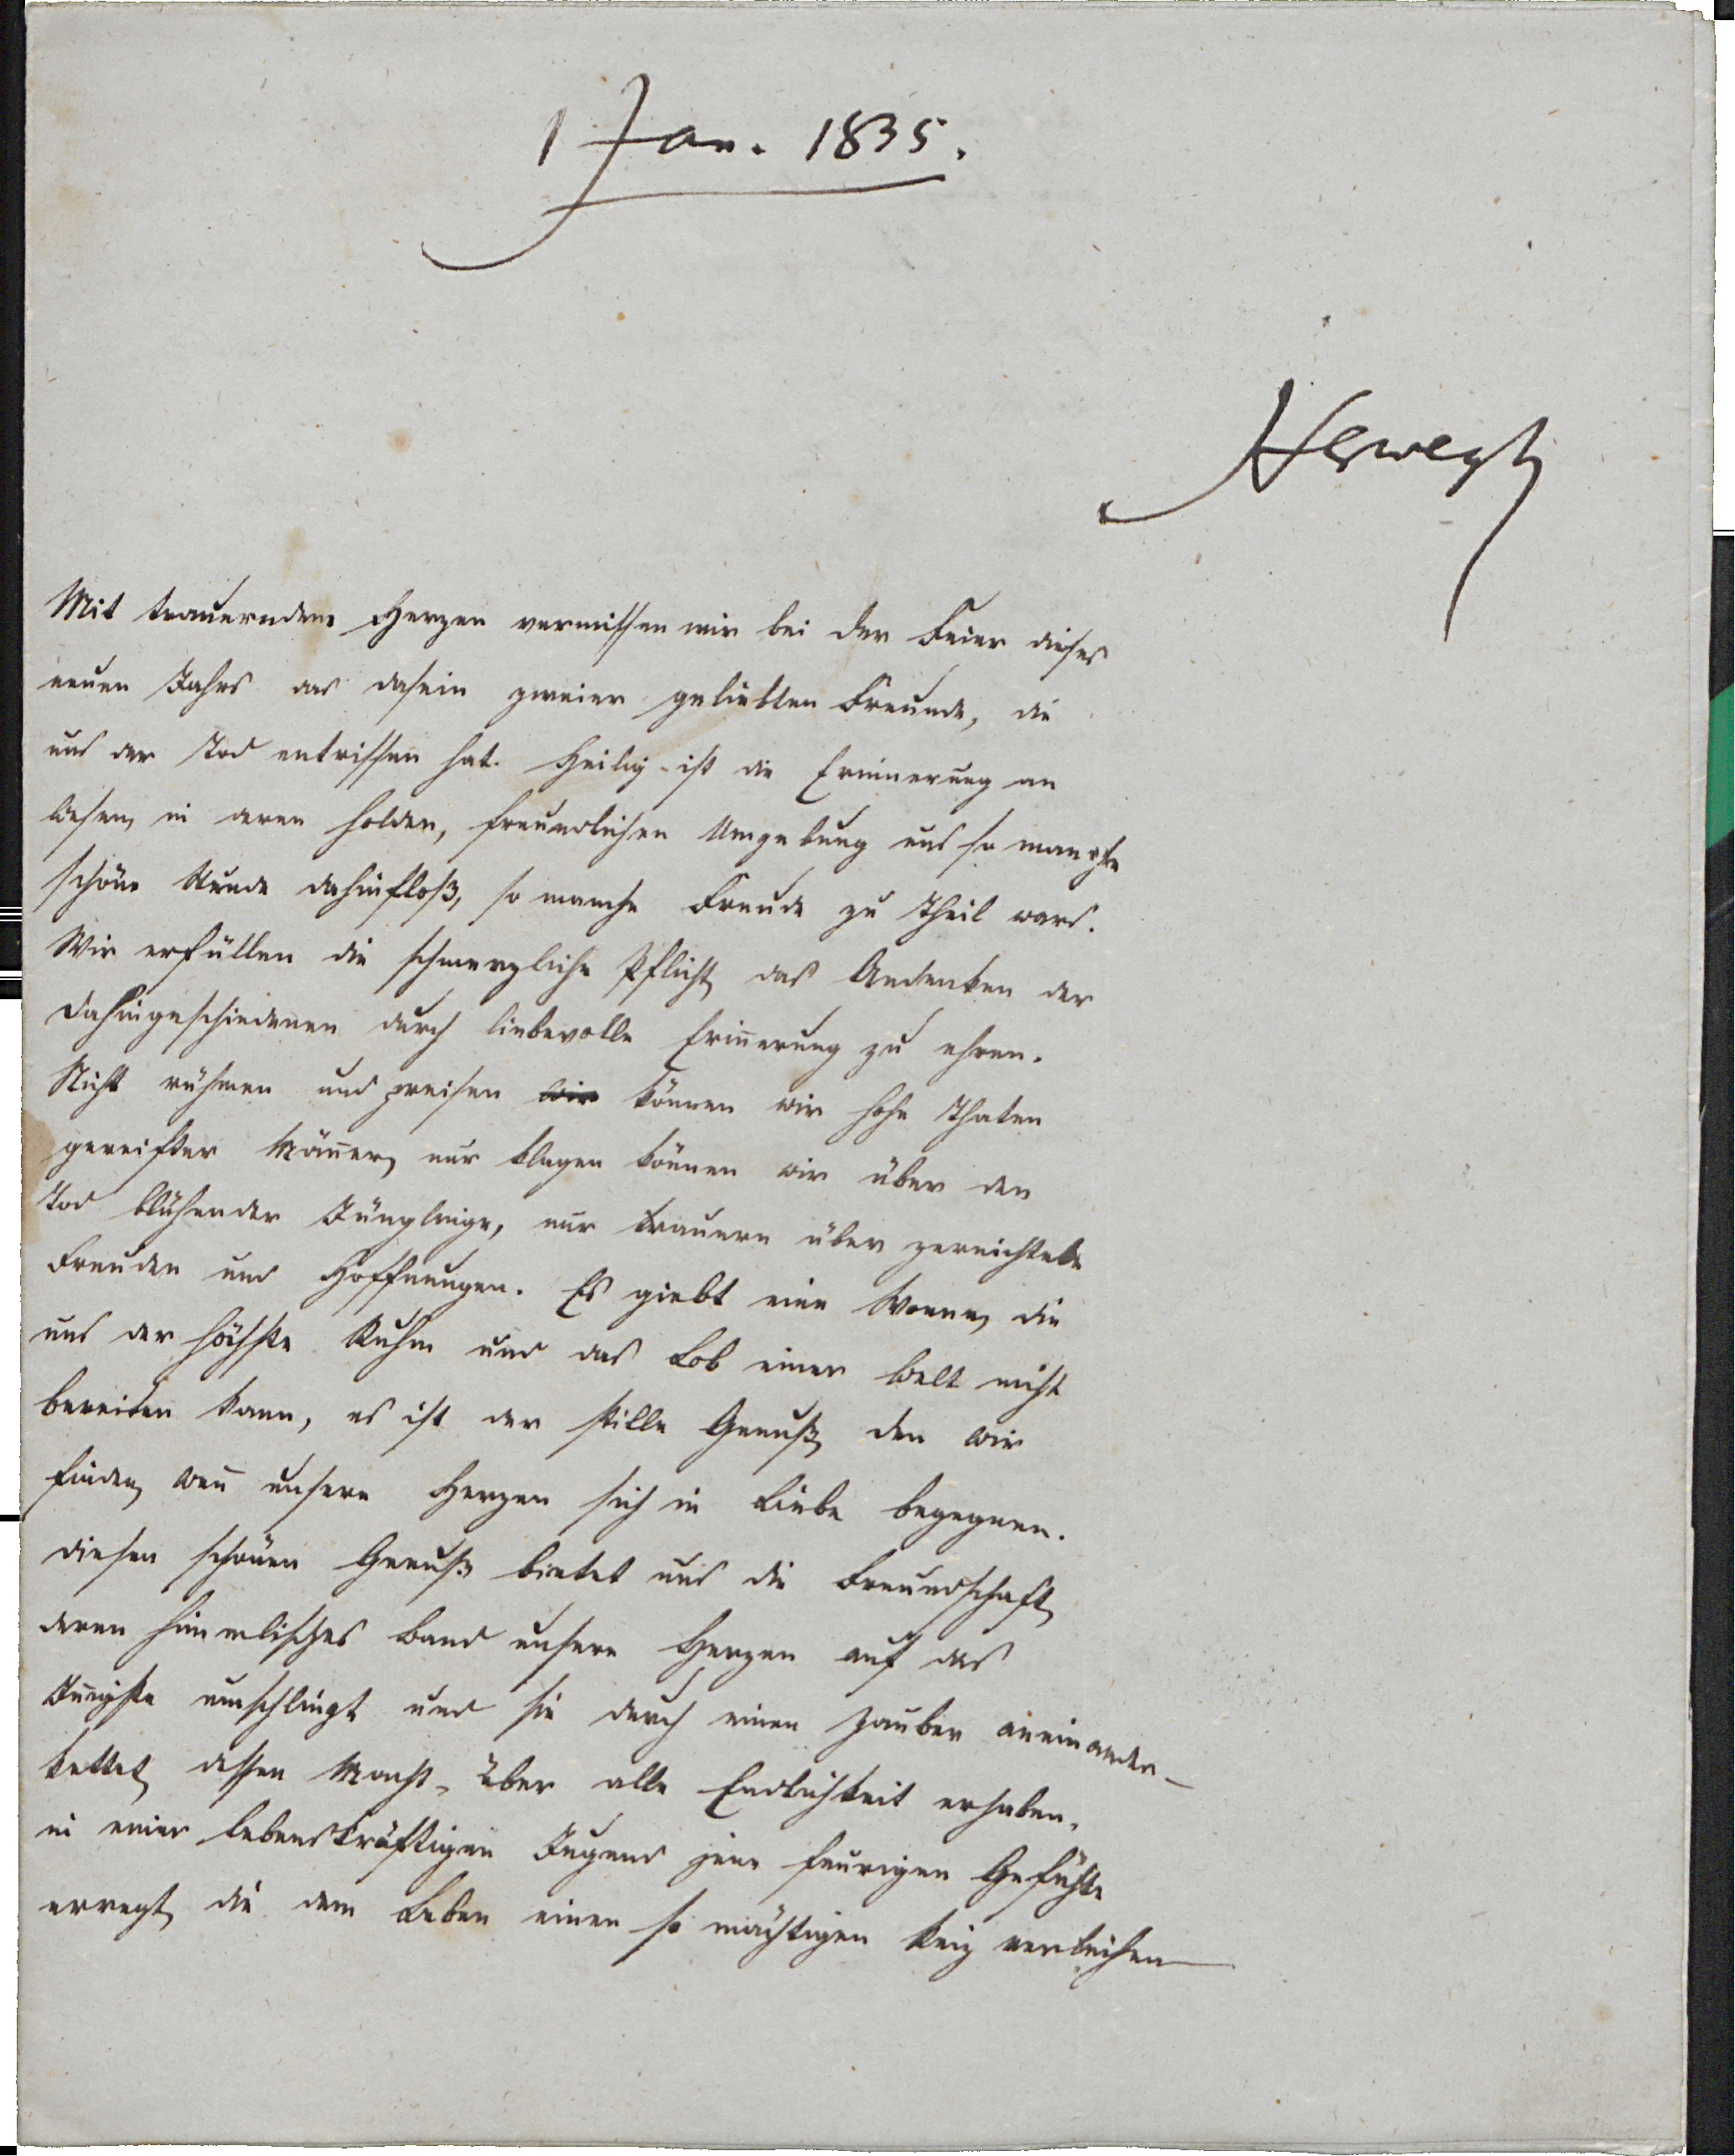 1 Jan. 1835.
Herwegh
Mit trauerndem Herzen vermissen wir bei der Feier dieses
neuen Jahrs das dasein zweier geliebten Freunde, die
uns der Tod entrissen hat. Heilig ist die Erinnerung an
diesen, in deren holden, freundlichen Umgebung uns so manche
schöne Stunde dahinfloß, so manche Freude zu Theil ward.
Wir erfüllen die schmerzliche Pflicht, das Andenken der
dahingeschiedenen durch liebevolle Erin̄erung zu ehren.
Nicht rühmen und preisen wir können wir hohe Thaten
gereifter Män̄er, nur klagen können wir über den
Tod blühender Jünglinge, nur trauern über zernichtete
Freuden und Hoffnungen. Es giebt eine Wonne, die
uns der höchste Ruhm und das Lob einer Welt nicht
bereiten kann, es ist der stille Genuß, den wir
finden, wen̄ unsere Herzen sich in Liebe begegnen.
diesen schönen Genuß bietet uns die Freundschaft,
deren himmlisches Band unsere Herzen auf das
In̄igste umschlingt und sie durch einen Zauber aneinander-
kettet, dessen Macht, über alle Endlichkeit erhaben,
in einer lebenskräftigen Jugend jene feurigen Gefühle
erregt, die dem Leben einen so mächtigen Reiz verleihen